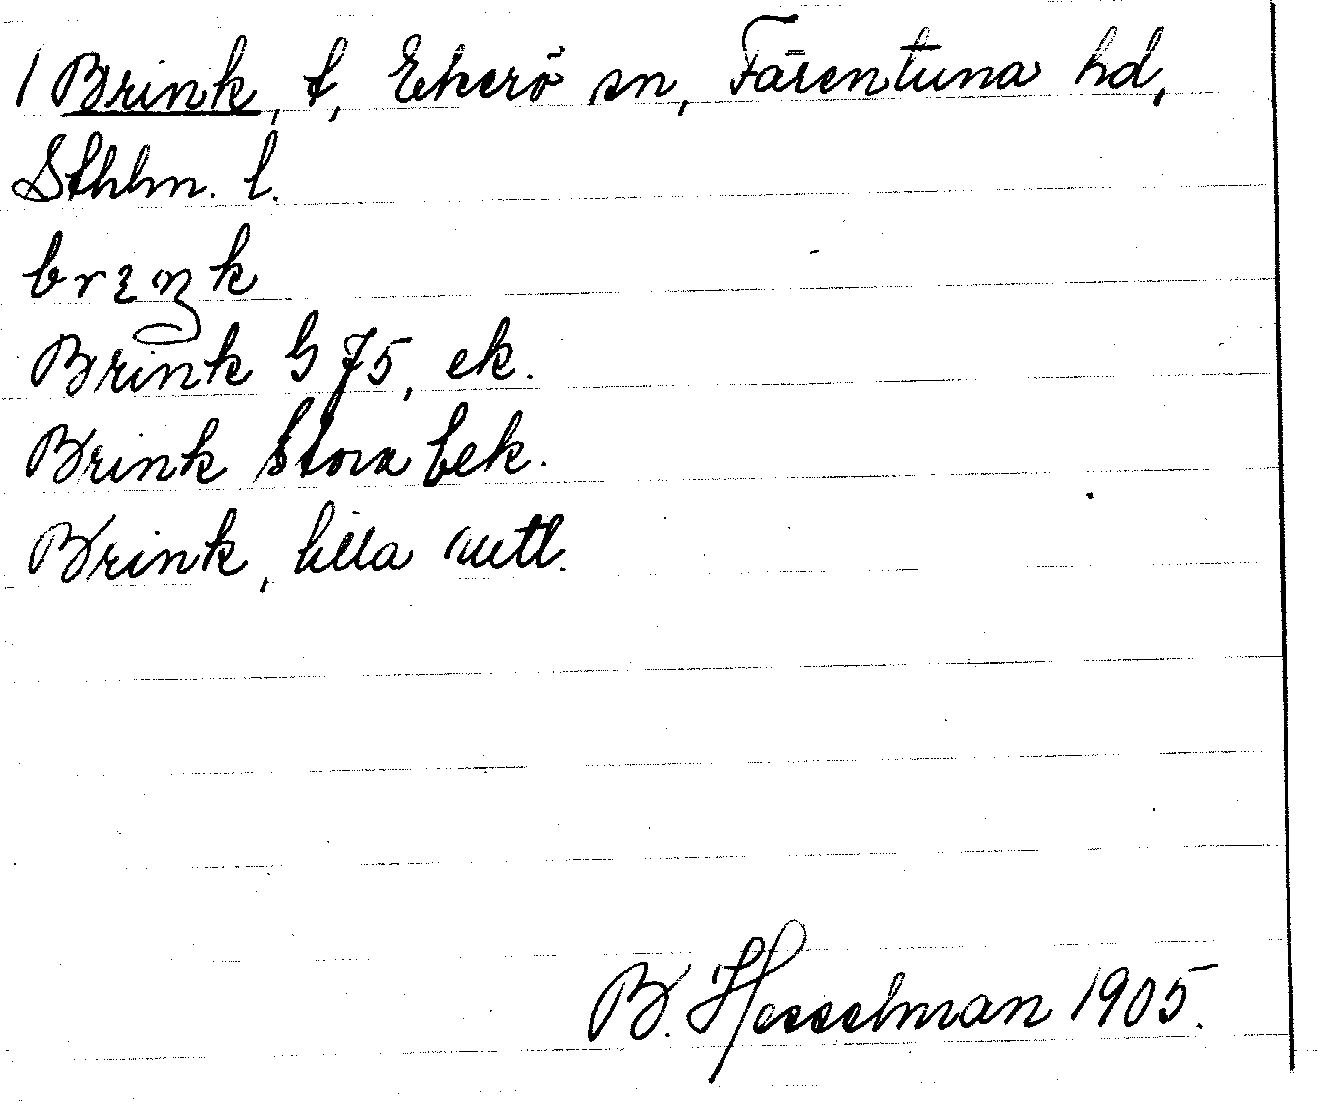 1 Brink, t, Ekerö sn, Färentuna hd,
Sthlm. l.
brɪŋk
Brink G 75, ek.
Brink Stora bek.
Brink, lilla uttl.
B. Hesselman 1905.